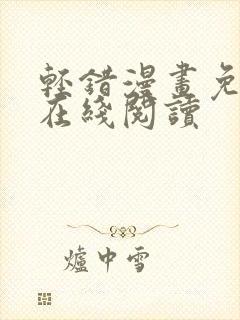 輕錯漫畫免
在綫閱讀
爐中雪